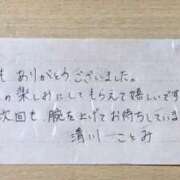 も ありがとうございました。
の 楽しみにしてもらえて嬉しいです
次回も 腕を上げてお待ちしていま
清川 ことみ